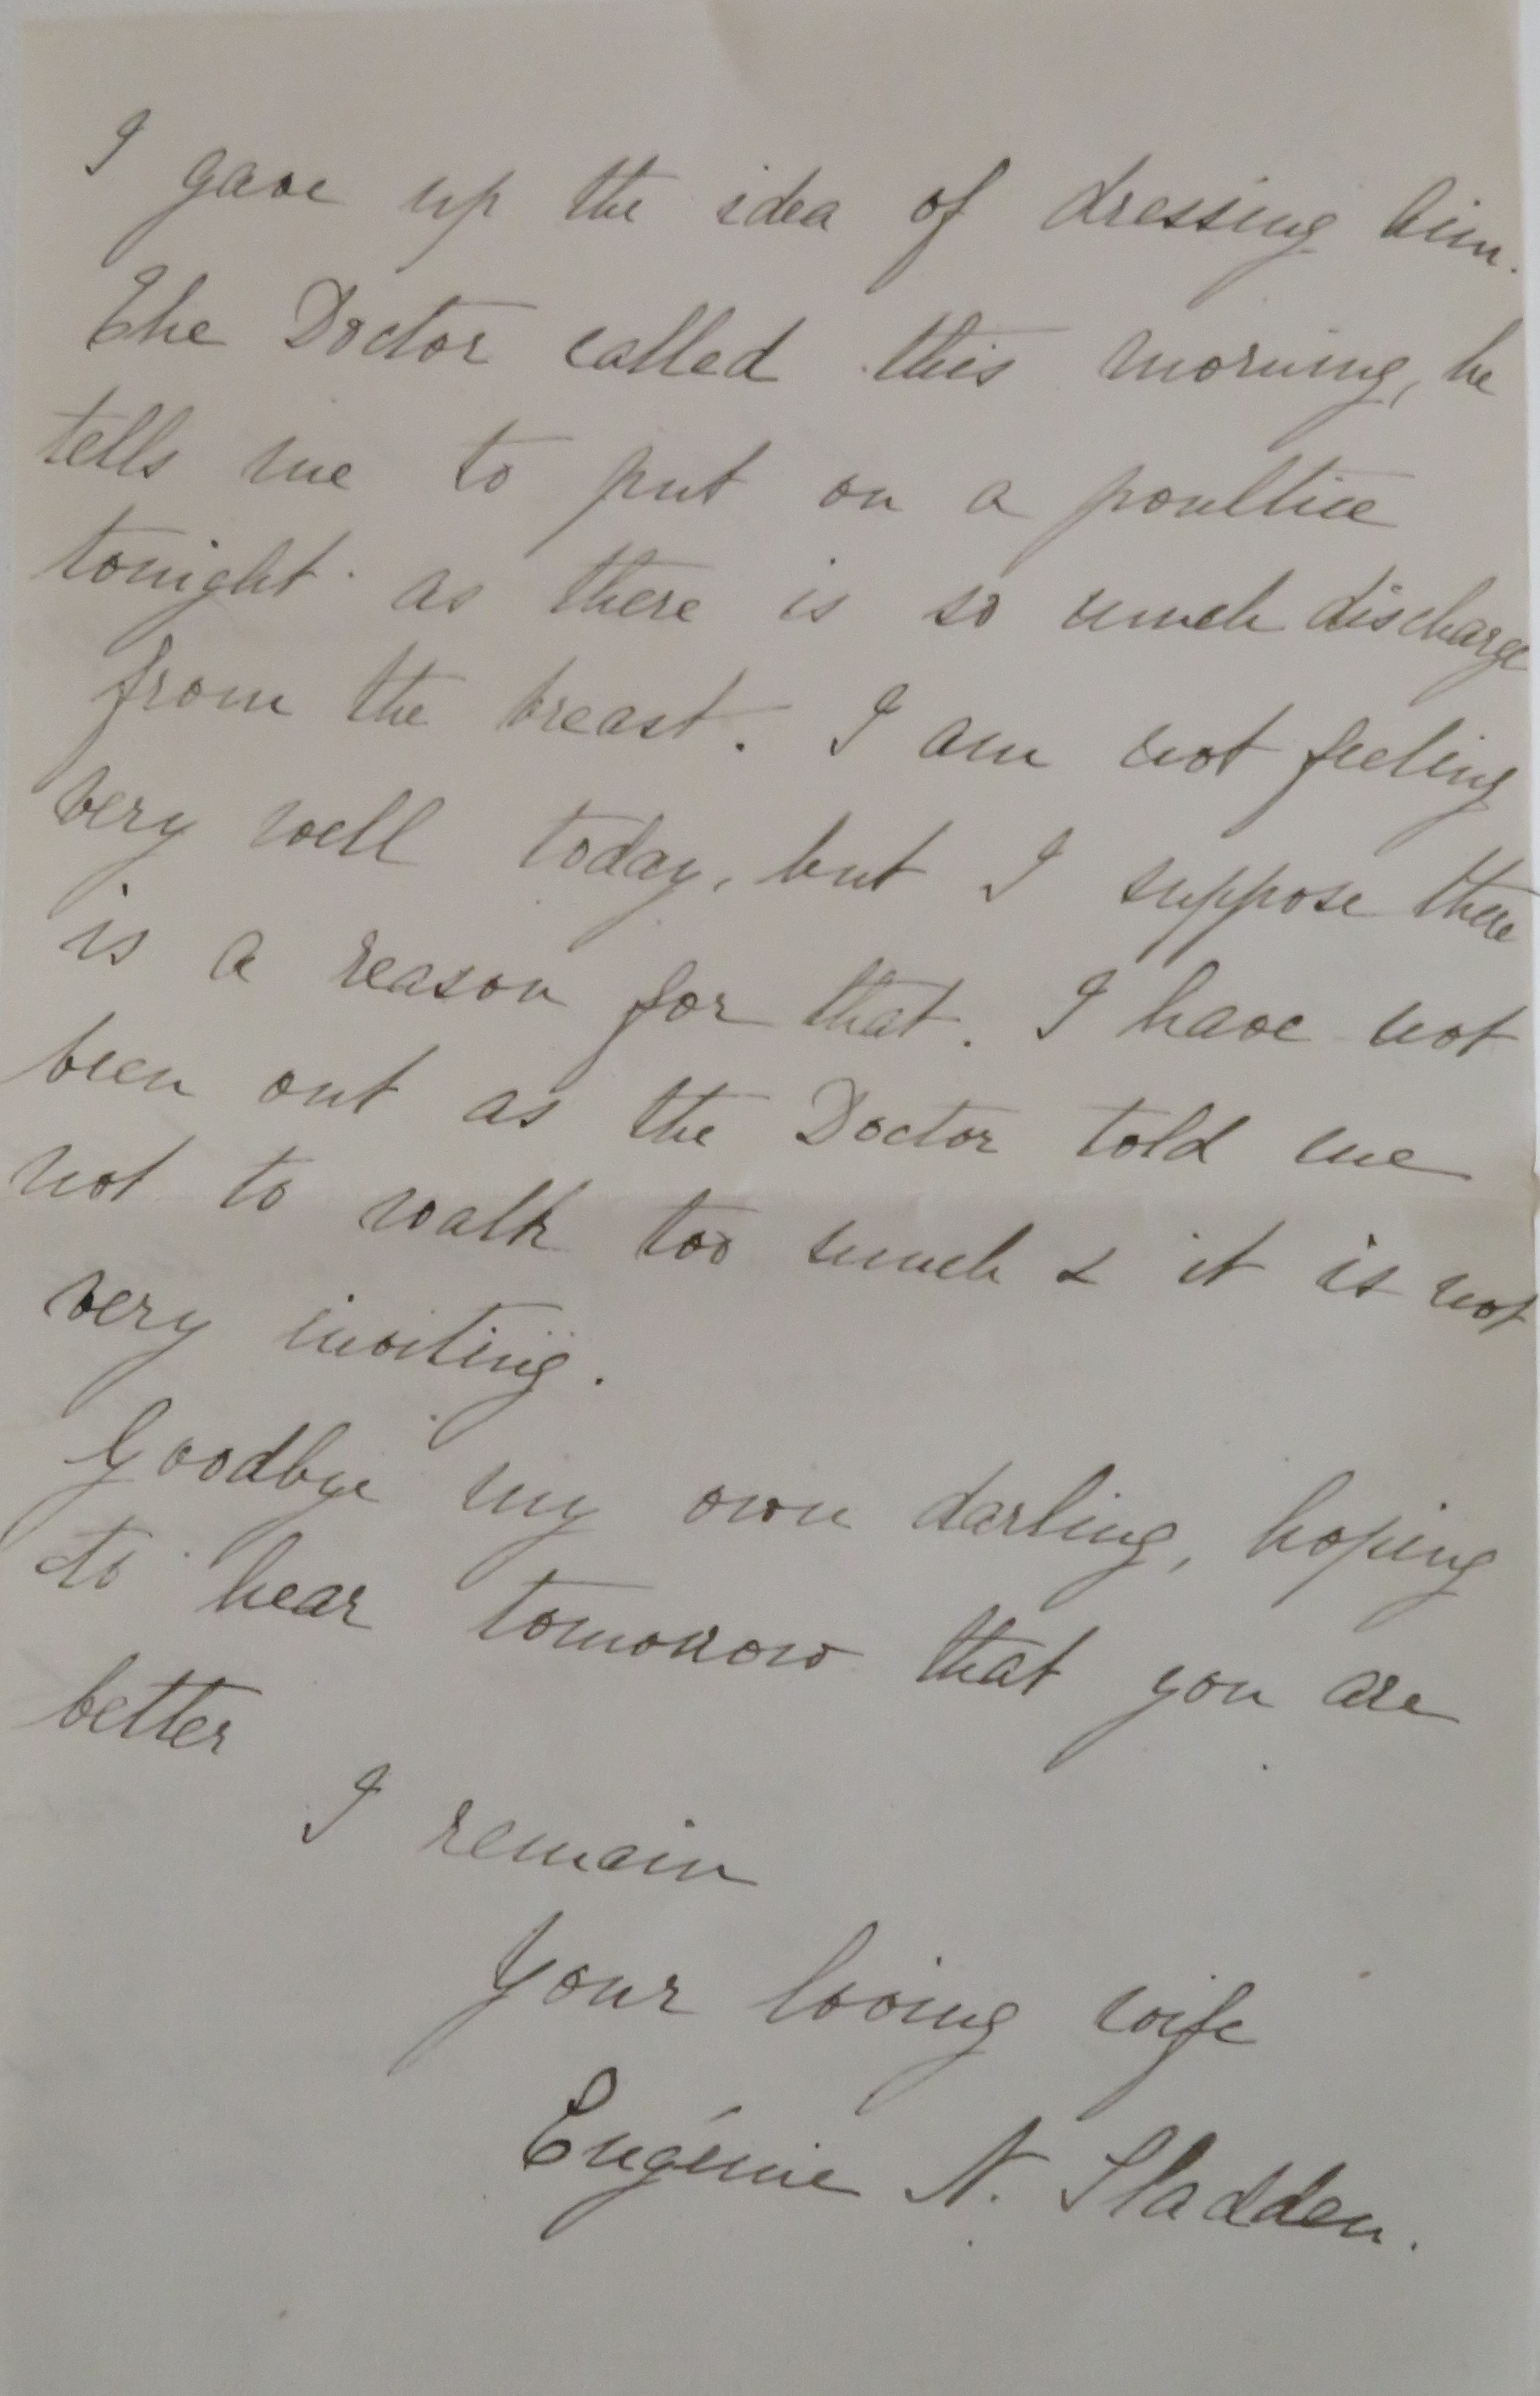 I gave up the idea of dressing him.
The Doctor called this morning, he
tells me to put on a poultice
tonight as there is so much discharge
from the breast. I am not feeling
very well today, but I suppose there
is a reason for that. I have not
been out as the Doctor told me
not to walk too much & it is not
very inviting.
Goodbye my own darling, hoping
to hear tomorrow that you are
better
I remain
Your loving wife
Eugénie N. Sladden.